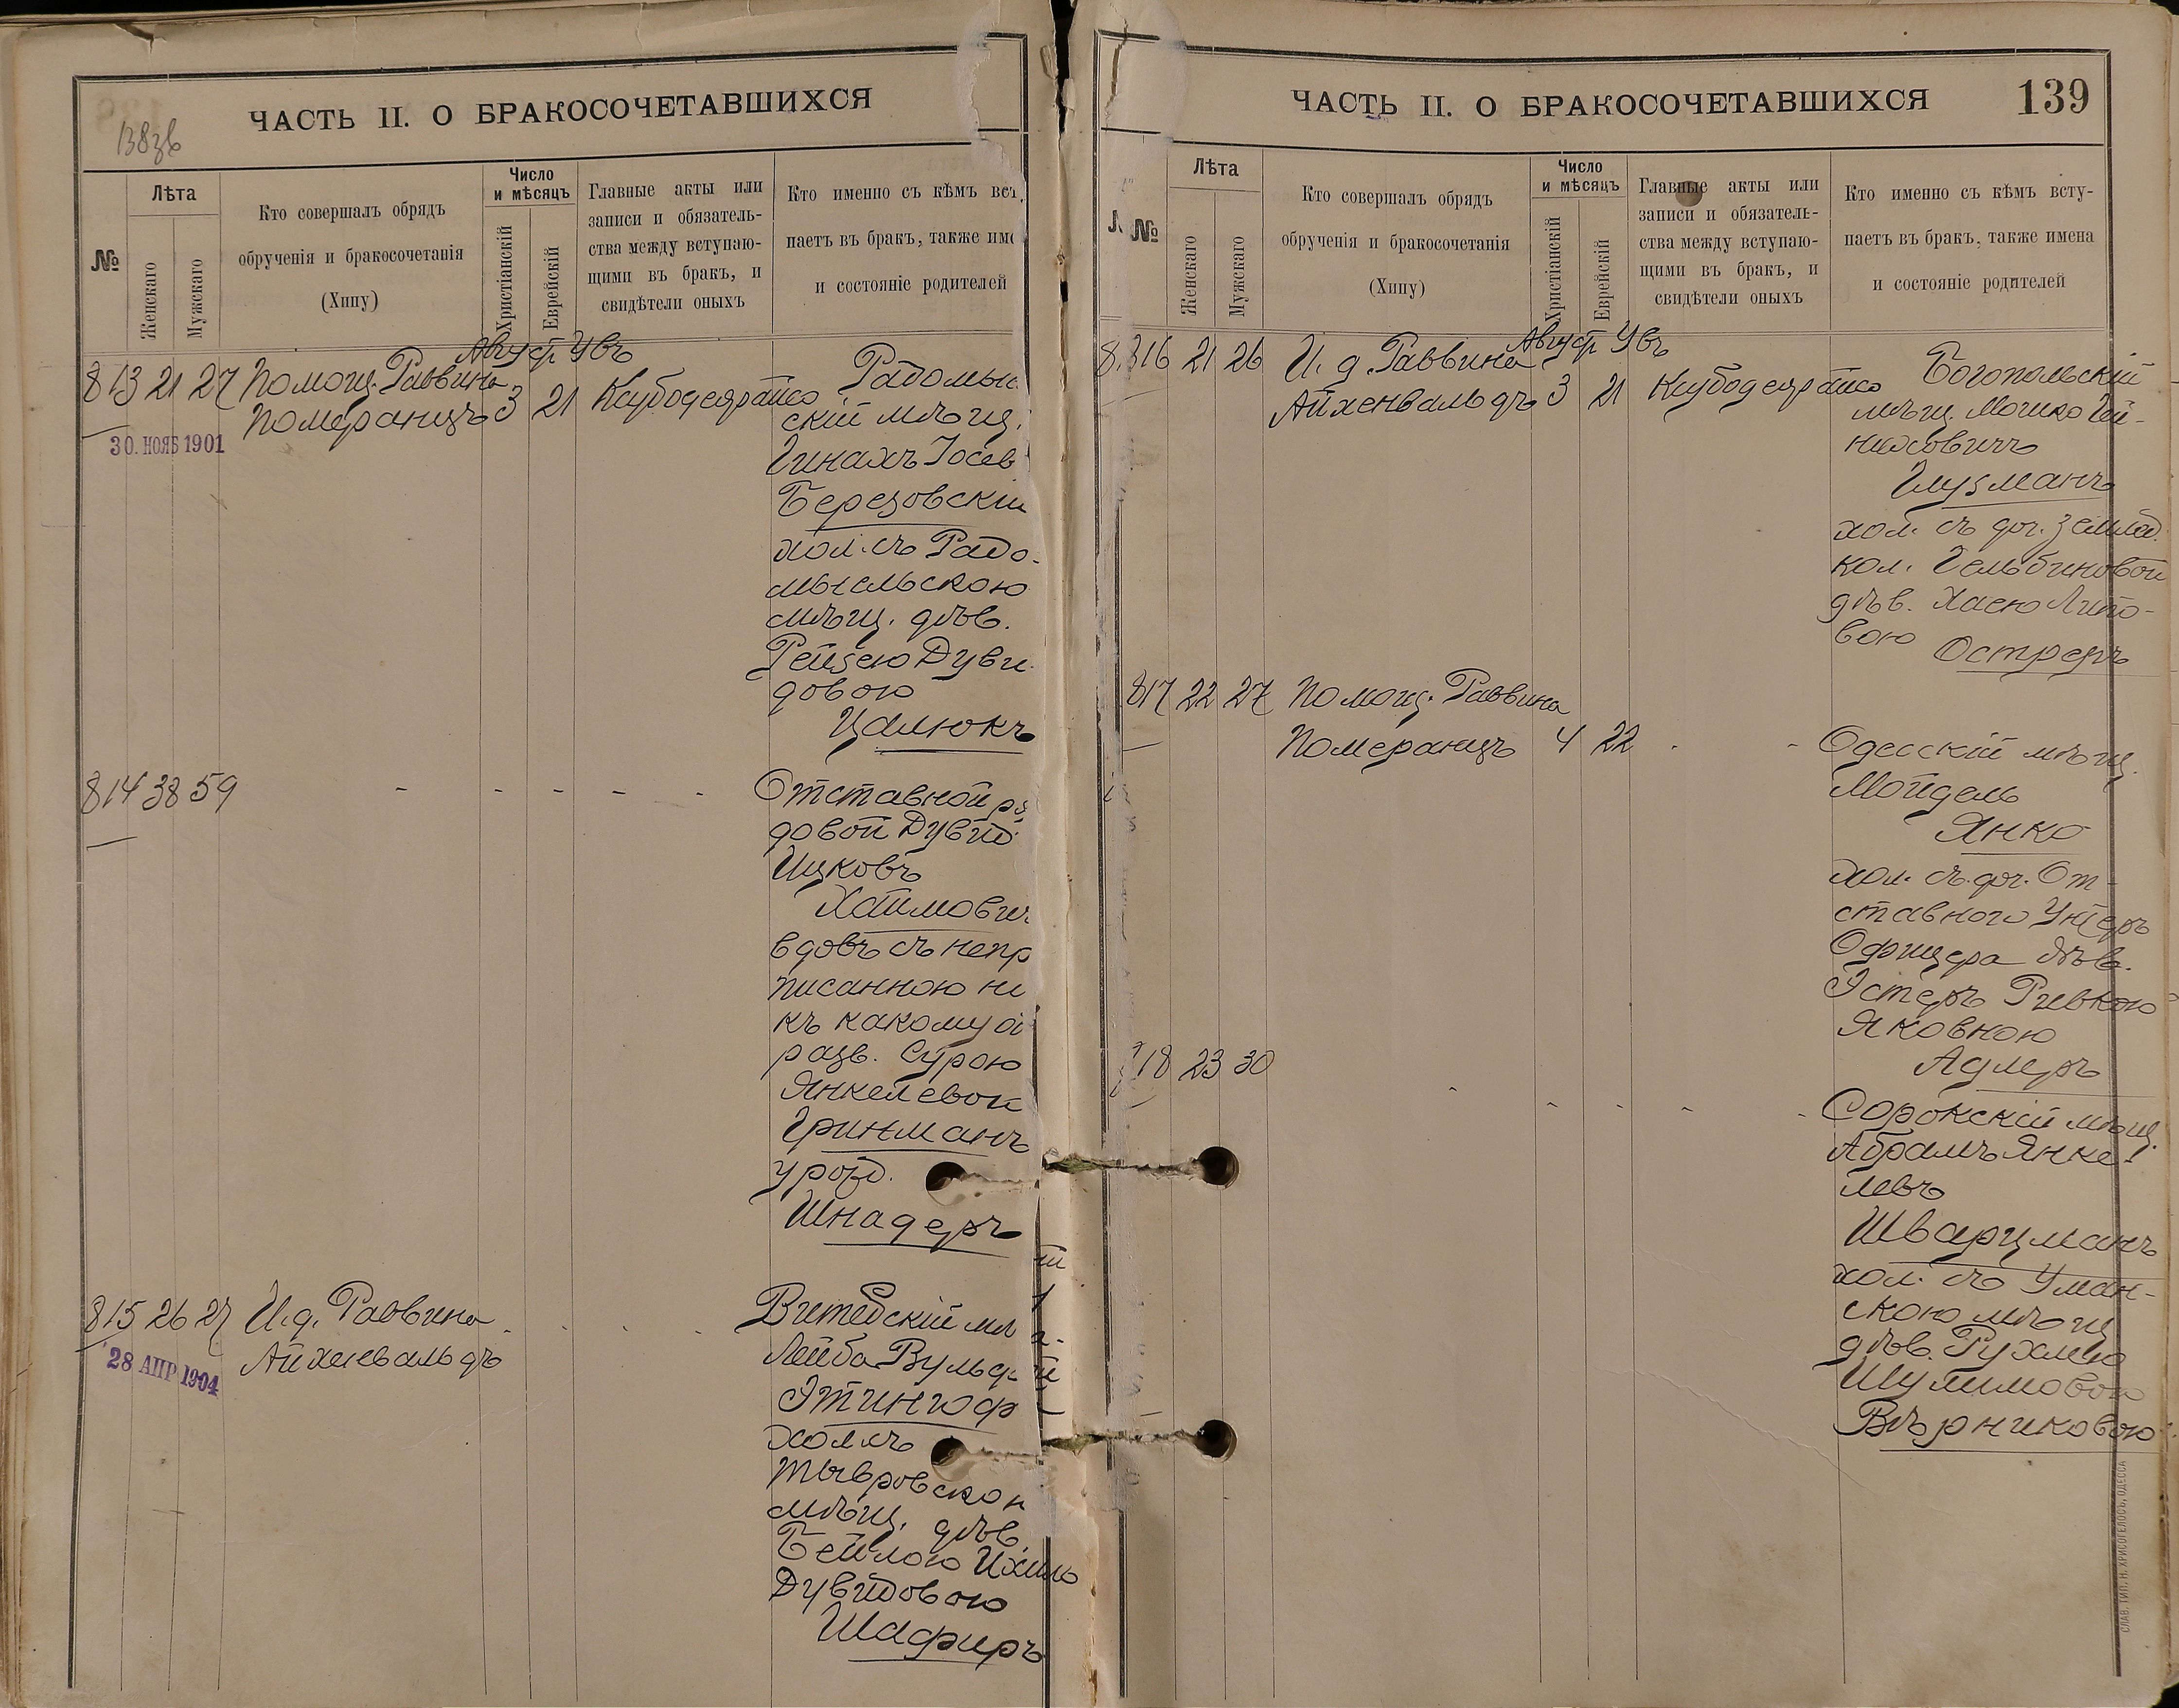 ЧАСТЬ II. О БРАКОСОЧЕТАВШИХСЯ
138зв
№
Лѣта
Женскаго
Мужскаго
Кто совершалъ обрядъ
обрученія и бракосочетанія
(Хипу)
Число
и мѣсяцъ
Христіанскій
Еврейскій
Главные акты или
записи и обязатель-
ства между вступаю-
щими въ бракъ, и
свидѣтели оныхъ
Кто именно съ кѣмъ вст
паетъ въ бракъ, также им
и состояніе родителей
Август Увъ
813 21 27 Помощ. Раввина
Померанцъ 3 21
30. НОЯБ 1901
Радомыс
скій мѣщ.
Гинахъ Іосев
Березовскій
хол. съ Радо-
мысльскою
мѣщ. дѣв.
Рейзею Дуви-
довою
Цалюкъ
814 38 59 - - - - -
Отставной ря
довой Дувид
Ицковъ
Хаимович
вдовъ съ непр
писанною ни
къ какому о
разв. Сурою
Янкелевой
Гринманъ
урожд.
Шнадеръ
815 26 27 И. д. Раввина - - - -
Айхенвальдъ
28 АПР 1904
Витебскій мѣ
Лейба Вульф
Этингоф
хол. съ
Тывровской
мѣщ. дѣв.
Бейлою Ихиль
Дувидовою
Шафиръ
ЧАСТЬ II. О БРАКОСОЧЕТАВШИХСЯ 139
№
Лѣта
Женскаго
Мужскаго
Кто совершалъ обрядъ
обрученія и бракосочетанія
(Хипу)
Число
и мѣсяцъ
Христіанскій
Еврейскій
Главные акты или
записи и обязатель-
ства между вступаю-
щими въ бракъ, и
свидѣтели оныхъ
Кто именно съ кѣмъ всту-
паетъ въ бракъ, также имена
и состояніе родителей
Август Увъ
816 21 26 И. д. Раввина
Айхенвальдъ 3 21
Богопольскій
мѣщ. Мошко
Глузманъ
хол. съ доч. землед.
кол. Гельбиновой
дѣв. Хаею Липо-
вою
Остреръ
817 22 27 Помощ. Раввина
Померанцъ 4 22 - -
Одесскій мѣщ.
Мойдель
Янко
хол. съ доч. От-
ставного Унтеръ
Офицера дѣв.
Эстеръ Ривкою
Яковною
Адлеръ
818 23 30 - - - - -
Сорокскій мѣщ.
Абрамъ Янке-
левъ
Шварцманъ
хол. съ Уман-
скою мѣщ
дѣв. Рухлею
Шулимовою
Вѣрниковою
СЛАВ. ТИП. Н. ХРИСОГЕЛОСЪ, ОДЕССА